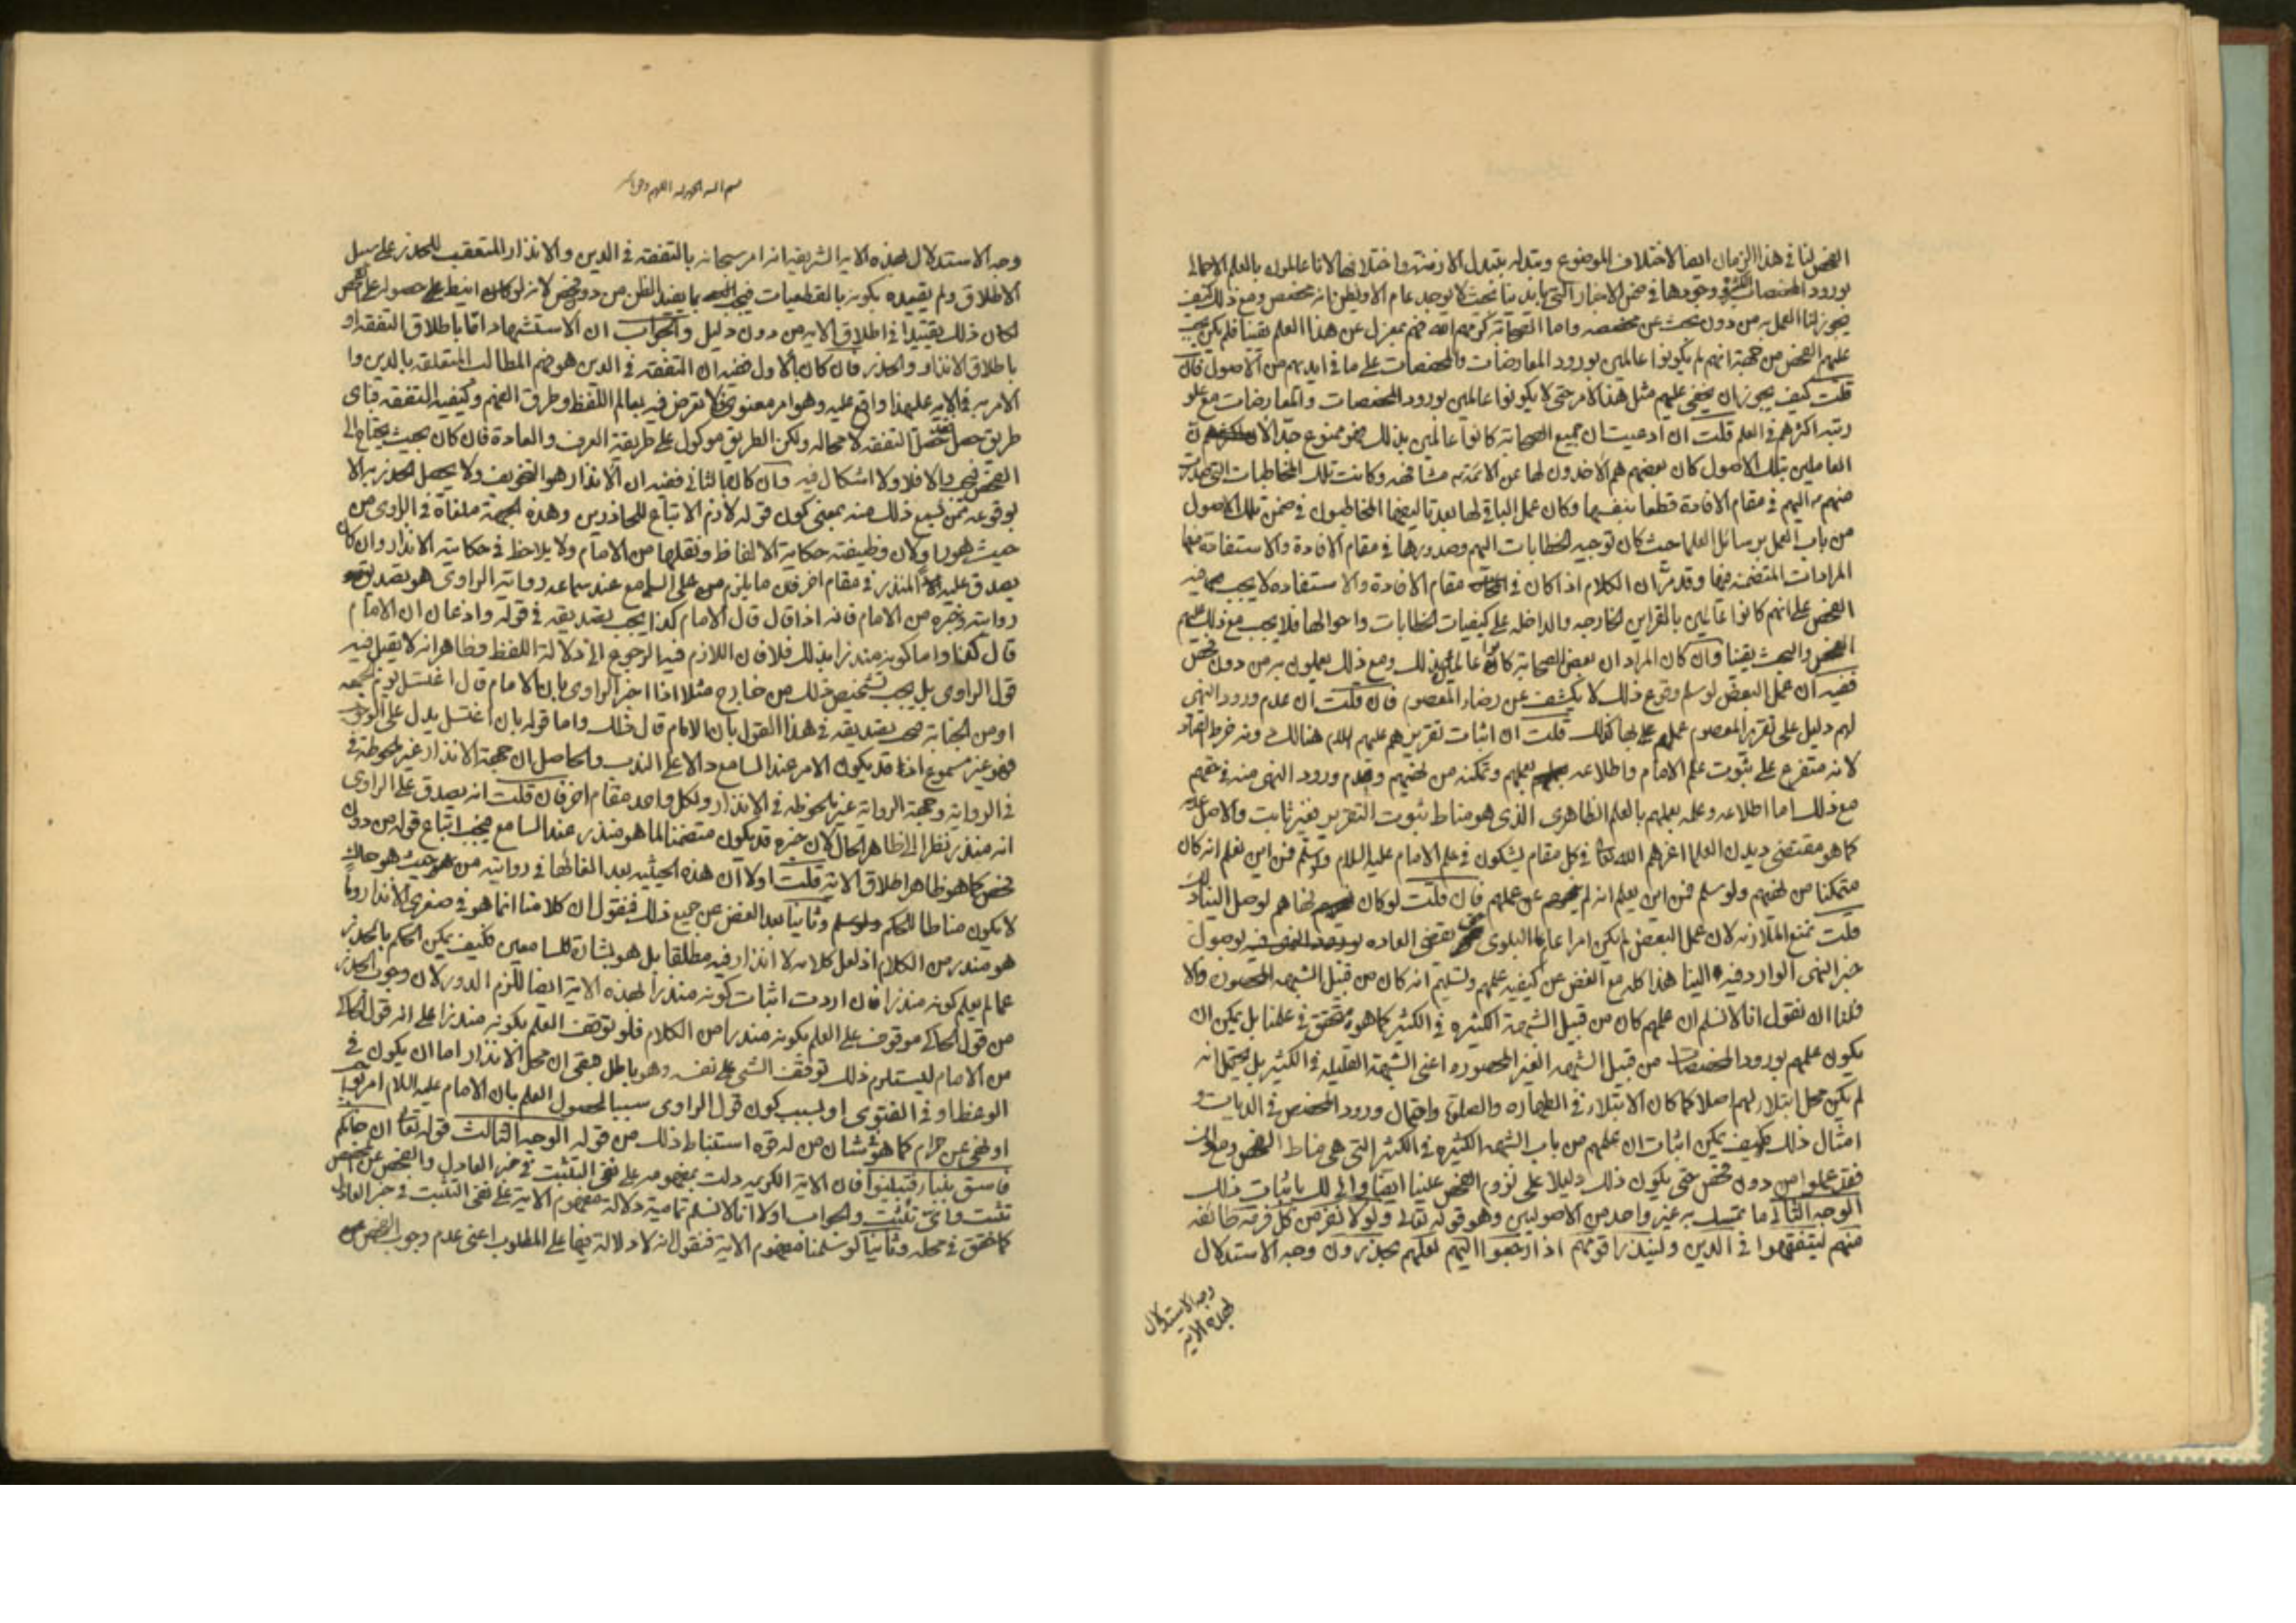 الفحص لنا في هذا الزمان ايضا لاختلاف الموضوع وتبدله بتبدل الازمنة واختلافها لانا عالمون بالعلم الاجمالي
بورود المخصصات الكثيرة ووجودها في ضمن الاخبار التي بايدينا بحيث لا يوجد عام الا ويظن انه مخصص ومع ذلك كيف
يجوز لنا العمل به من دون بحث عن مخصصه واما الصحابة فهم بمعزل عن هذا العلم يقينا فلم يكن يجب
عليهم الفحص من جهة انهم لم يكونوا عالمين بورود المعارضات والمخصصات على ما في ايديهم من الاصول فان
قلت كيف يجوز ان يخفى عليهم مثل هذا الامر حتى لا يكونوا عالمين بورود المخصصات والمعارضات مع علو
رتبة اكثرهم في العلم قلت ان ادعيت ان جميع الصحابة كانوا عالمين بذلك فهو ممنوع جدا لان
العاملين بتلك الاصول كان بعضهم هم الاخذون لها عن الائمة مشافهة وكانت تلك المخاطبات التي صدرت
منهم اليهم في مقام الافادة قطعا بنفسها وكان عمل الباقي لها بعد تاليفها المخاطبون في ضمن تلك الاصول
من باب العمل برسائل العلما حيث كان توجيه الخطابات اليهم وصدورها في مقام الافادة والاستفادة منها
المرادات المتضمنة فيها وقد مر ان الكلام اذا كان في مقام الافادة والاستفادة لا يجب فيه
الفحص على انهم كانوا عالمين بالقراين الخارجه والداخله على كيفيات الخطابات واحوالها فلا يجب مع ذلك عليهم
الفحص والبحث يقينا وان كان المراد ان بعض الصحابة كانوا عالمين بذلك ومع ذلك يعملون به من دون فحص
ففيه ان عمل البعض لو سلم وقوع ذلك لا يكشف عن رضاء المعصوم فان قلت ان عدم ورود النهي
لهم دليل على تقرير المعصوم عملهم قلت ان اثبات تقريرهم عليهم السلام هنالك دونه خرط القتاد
لانه متفرع على ثبوت علم الامام واطلاعه بعملهم وتمكنه من نهيهم وعدم ورود النهي منه في حقهم
مع ذلك اما اطلاعه وعلمه بعملهم بالعلم الظاهري الذي هو مناط ثبوت التقرير فغير ثابت والاصل عدمه
كما هو مقتضى ديدن العلما اعزهم الله تعالى في كل مقام يشكون في علم الامام عليه السلام ولو سلم فمن اين نعلم انه كان
متمكنا من نهيهم ولو سلم فمن اين يعلم انه لم عن عملهم فان قلت لو كان نهاهم لوصل الينا ذلك
قلت نمنع الملازمة لان عمل البعض لم يكن امرا عام البلوى حتى يقتضي العادة بوصول
خبر النهي الوارد فيه الينا هذا كله مع الغض عن كيفية علمهم وتسليم انه كان من قبيل الشبهة المحصورة والا
فلنا ان نقول انا لا نسلم ان علمهم كان من قبيل الشبهة الكثيرة في الكثير كما هو متحقق في علمنا بل يمكن ان
يكون علمهم بورود المخصصات من قبيل الشبهة الغير المحصورة اعني الشبهة القليلة في الكثير بل يحتمل انه
لم يكن محل ابتلاء لهم اصلا كما كان الابتلاء في الطهارة والصلوة واحتمال ورود المخصص في الديات و
امثال ذلك فكيف يمكن اثبات ان علمهم من باب الشبهة الكثيرة في الكثير التي هي مناط الفحص ومع ذلك
فقد عملوا من دون فحص حتى يكون ذلك دليلا على لزوم الفحص علينا ايضا باثبات ذلك
الوجه الثاني ما تمسك به غير واحد من الاصوليين وهو قوله تعالى ولولا نفر من كل فرقة طائفة
منهم ليتفقهوا في الدين ولينذروا قومهم اذا رجعوا اليهم لعلهم يحذرون وجه الاستدلال
وجه الاستدلال
بهذه الاية
وجه الاستدلال بهذه الاية الشريفة انه امر سبحانه بالتفقه في الدين والانذار المتعقب للحذر على سبيل
الاطلاق ولم يقيده بكونه بالقطعيات فيجب بما يفيد الظن من دون فحص لانه لو كان انيط على حصوله على الفحص
لكان ذلك تقييدا في اطلاق الاية من دون دليل والجواب ان الاستشهاد اما باطلاق التفقه او
باطلاق الانذار والحذر فان كان بالاول ففيه ان التفقه في الدين هو فهم المطالب المتعلقة بالدين وا
الامر به في الاية عليهذا واقع عليه وهو امر معنوي لا تعرض فيه بعالم اللفظ وطرق الفهم وكيفية التفقه فباي
طريق حصل حصل التفقه لا محاله ولكن الطريق موكول على طريقة العرف والعادة فان كان بحيث يحتاج الى
الفحص فيجب والا فلا ولا اشكال فيه وان كان بالثاني ففيه ان الانذار هو التخويف ولا يحصل الحذر به الا
بوقوعه ممن يسمع ذلك منه بمعنى كون قوله لازم الاتباع للحاذرين وهذه الجهة ملغاة في الراوي من
حيث هو راو لان وظيفته حكاية الالفاظ ونقلها من الامام ولا يلاحظ في حكايته الانذار وان كان
يصدق عليه المنذر في مقام اخر فان ما يلزم على السامع عند سماعه رواية الراوي هو تصديق
روايته وخبره من الامام فانه اذا قال قال الامام كذا يجب تصديقه في قوله واذعان ان الامام
قال كذا واما كونه منذرا بذلك فلا فان اللازم فيه الرجوع الى دلالة اللفظ وظاهر انه لا يقبل فيه
قول الراوي بل يجب تشخيص ذلك من خارج مثلا اذا اخبر الراوي بان الامام قال اغتسل يوم الجمعة
او من الجنابة يجب تصديقه في هذا القول بان الامام قال ذلك واما قوله بان اغتسل يدل على الوجوب
فهو غير مسموع اذ قد يكون الامر عند السامع دالا على الندب والحاصل ان جهة الانذار غير ملحوظة في
في الرواية وجهة الرواية غير ملحوظة في الانذار ولكل واحد مقام اخر فان قلت انه يصدق على الراوي
انه منذر نظرا الى ظاهر الحال لان خبره قد يكون متضمنا لما هو منذر عند السامع فيجب اتباع قوله من دون
فحص كما هو ظاهر اطلاق الاية قلت اولا ان هذه الحيثية بعد الغائها في روايته من حيث هو حاك
لا يكون مناطا للحكم وثانيا بعد الغض عن جميع ذلك فنقول ان كلامنا انما هو في صغرى الانذار وما
هو منذر من الكلام اذ لعل كلامه لا انذار فيه مطلقا بل هو بشارة للسامعين فكيف يمكن الحكم بالحذر
عما لم يعلم كونه منذرا فان اردت اثبات كونه منذرا بهذه الاية ايضا للزم الدور لان وجوب الحذر
من قول الحاكي موقوف على العلم بكونه منذرا من الكلام فلو توقف العلم بكونه منذرا على انه قول الحاكي
من الامام ليستلزم ذلك توقف الشيء على نفسه وهو باطل فبقي ان محل الانذار اما ان يكون في
الوعظ او في الفتوى او بسبب كون قول الراوي سببا لحصول العلم بان الامام عليه السلام امر بواجب
او نهى عن حرام كما هو شان من له قوة استنباط ذلك من قوله الوجه الثالث قوله تعالى ان جائكم
فاسق بنباء فتبينوا فان الاية الكريمة دلت بمفهومه على نفي التثبت في خبر العادل والفحص عن المخصص
تثبت واي تثبت والجواب اولا انا لا نسلم تمامية دلالة مفهوم الاية على نفي التثبت في خبر العادل
كما حقق في محله وثانيا لو سلمنا مفهوم الاية فنقول انه لا دلالة فيها على المطلوب اعني عدم وجوب الفحص عن